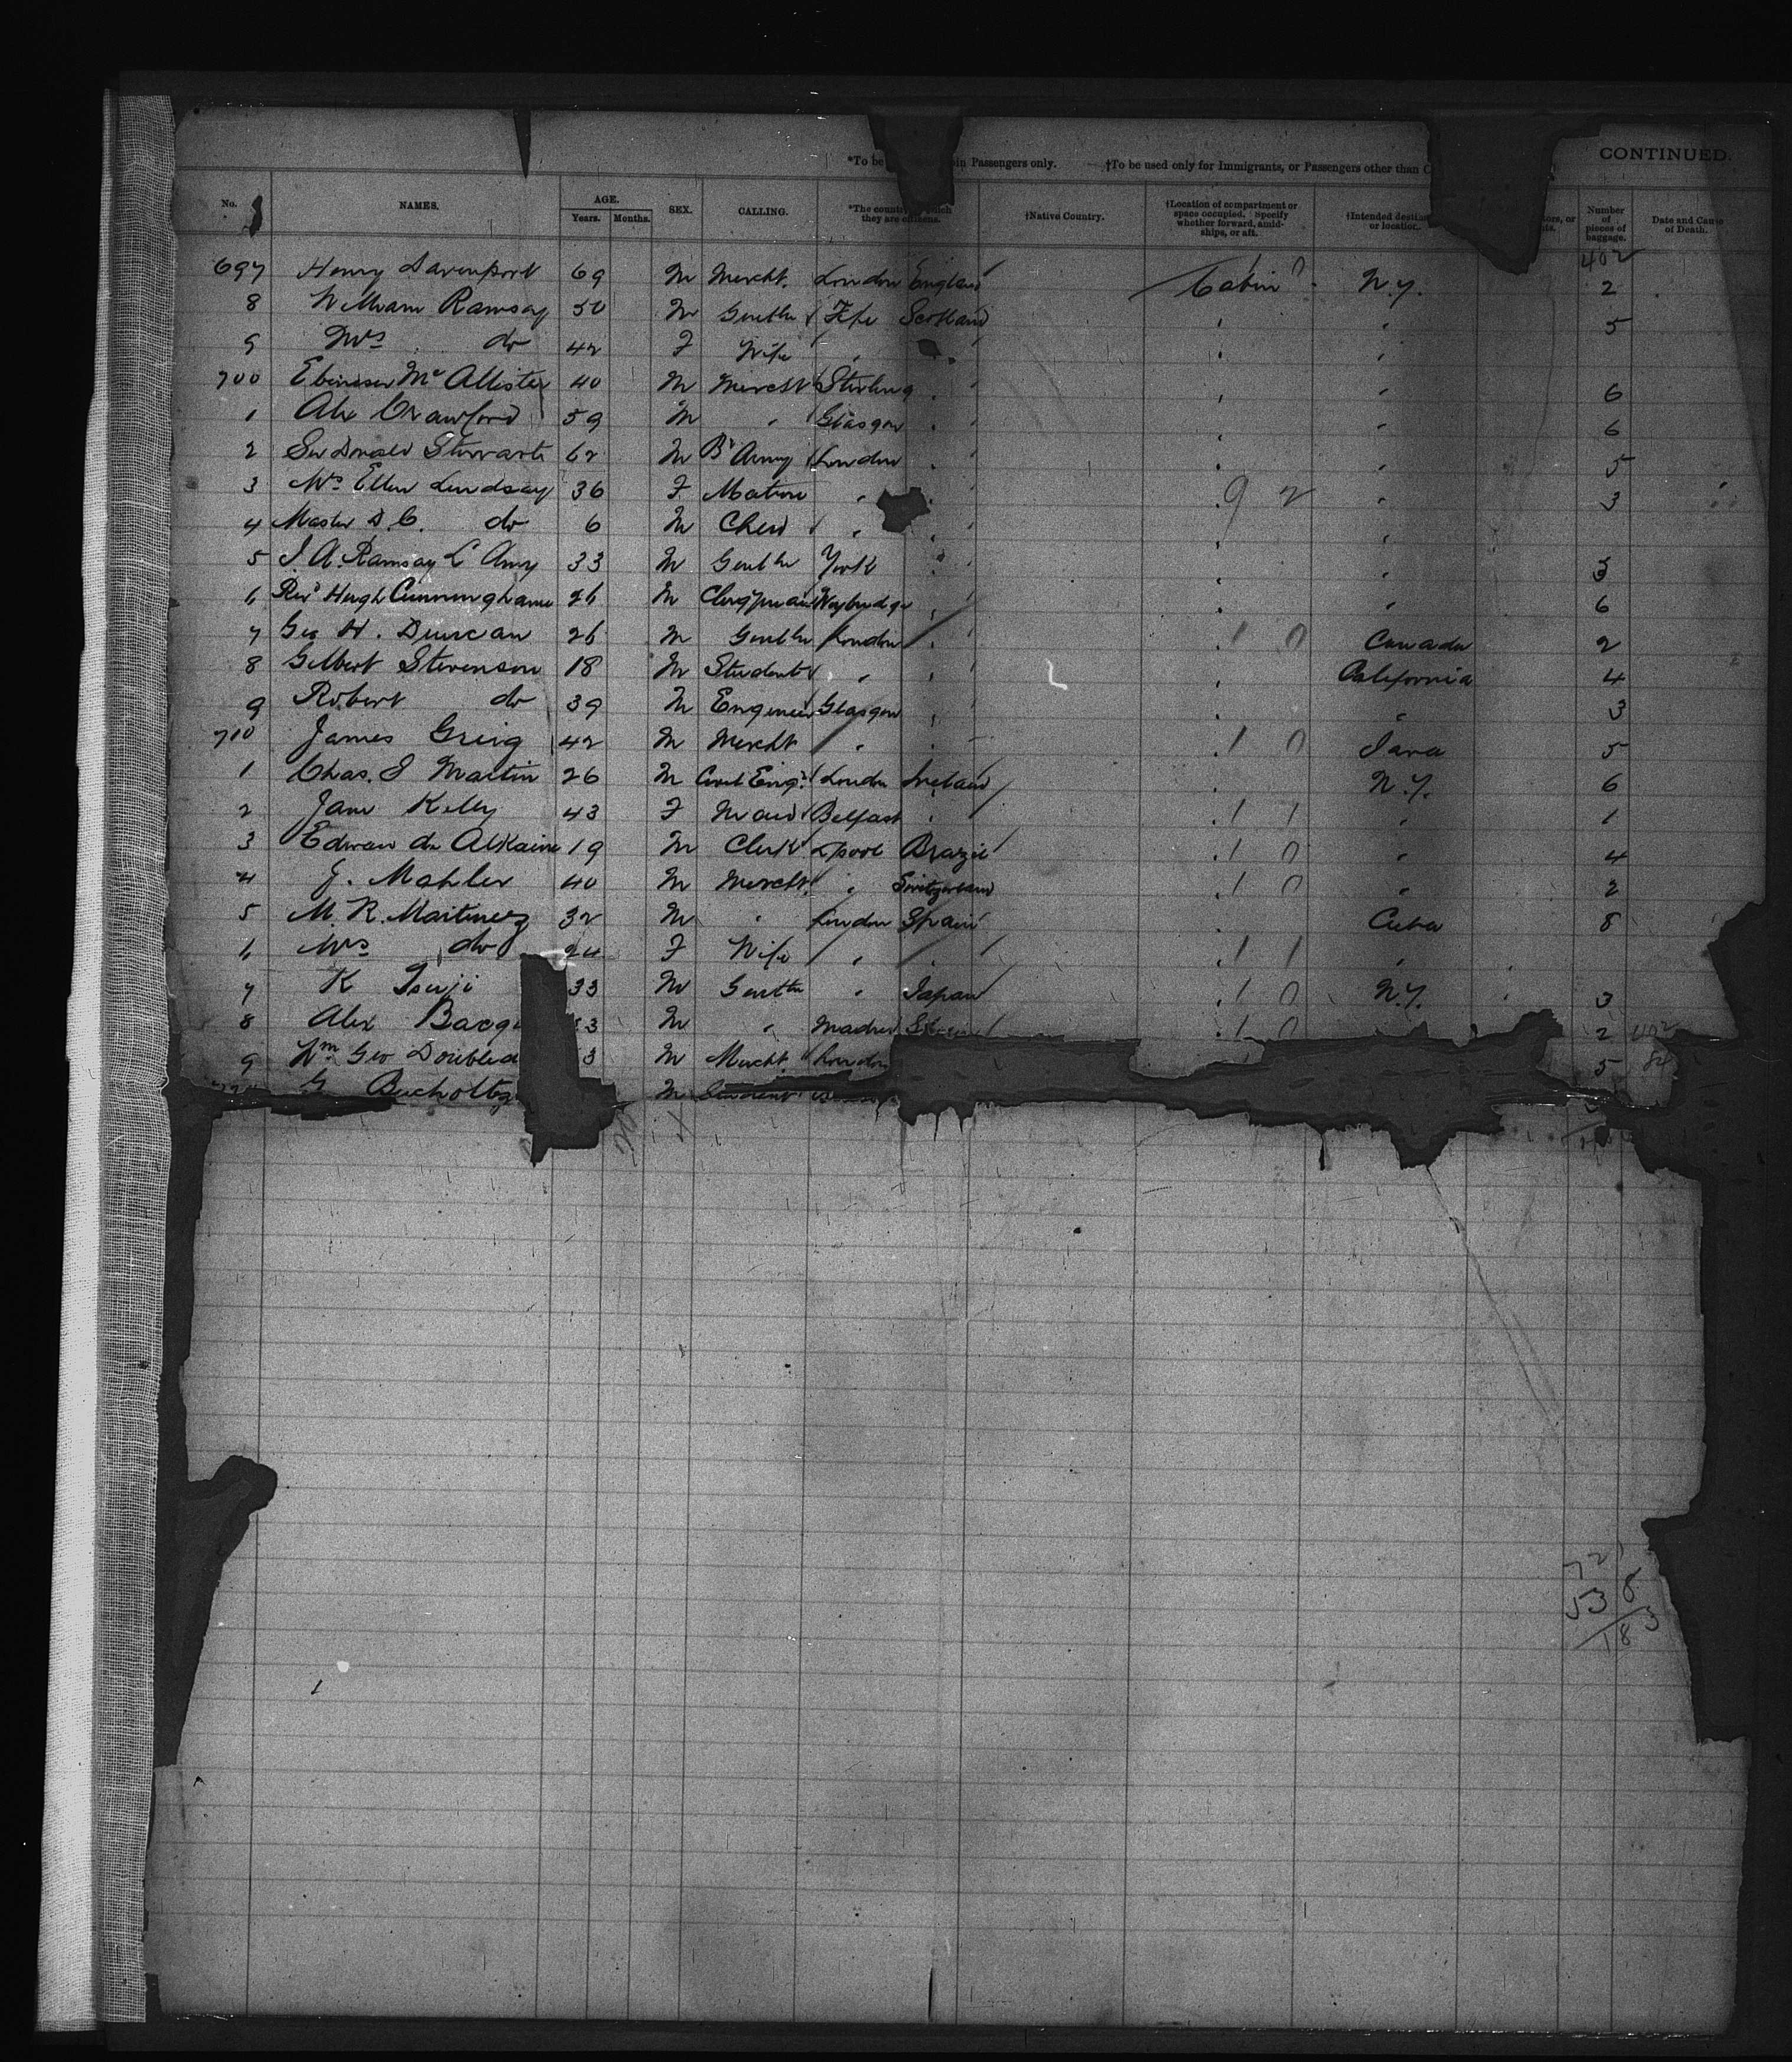 CONTINUED.
*To be in Passengers only. †To be used only for Immigrants, or Passengers other than C
No. NAMES. AGE. Years. Months. SEX. CALLING. *The country of which they are citizens. †Native Country. †Location of compartment or space occupied. Specify whether forward, amidships, or aft. †Intended destin or location. Number of pieces of baggage. Date and Cause of Death.
402
697 Henry Davenport 69 M Mercht. London England Cabin N.Y. 2
8 William Ramsay 50 M Gentln Fife Scotland " " 5
9 Mrs do 42 F Wife " " "
700 Ebineser McAllister 40 M Mercht Stirling " " " 6
1 Alex Crawford 59 M " Glasgow " " " 6
2 Sir Donald Stewart 62 M Br Army London " " " 5
3 Mrs Ellen Lindsay 36 F Matron " " 9 2 " 3
4 Master D. C. do 6 M Child " " " "
5 J. A. Ramsay L'Amy 33 M Gentln York " " " 3
6 Revd Hugh Cunninghame 26 M Clergyman Weybridge " " " 6
7 Geo H. Duncan 26 M Gentln London " 1 0 Canada 2
8 Gilbert Stevenson 18 M Student " " " California 4
9 Robert do 39 M Engineer Glasgow " " " 3
710 James Greig 42 M Mercht " " 1 0 Java 5
1 Chas. J Martin 26 M Civil Engr London Ireland " N.Y. 6
2 Jane Kelly 43 F Maid Belfast " 1 1 " 1
3 Edwan de Alkaine 19 M Clerk Lpool Brazil 1 0 " 4
4 J. Mahler 40 M Mercht " Switzerland 1 0 " 2
5 M. R. Martinez 32 M " London Spain Cuba 8
6 Mrs do 24 F Wife " " 1 1 "
7 K Tsuji 33 M Gentln " Japan 1 0 N.Y. 3
8 Alex M " Madrid 1 0 2 402
9 Wm Geo 3 M Mercht. London 5 84
G Bucholtz M Student
72
53 8
183